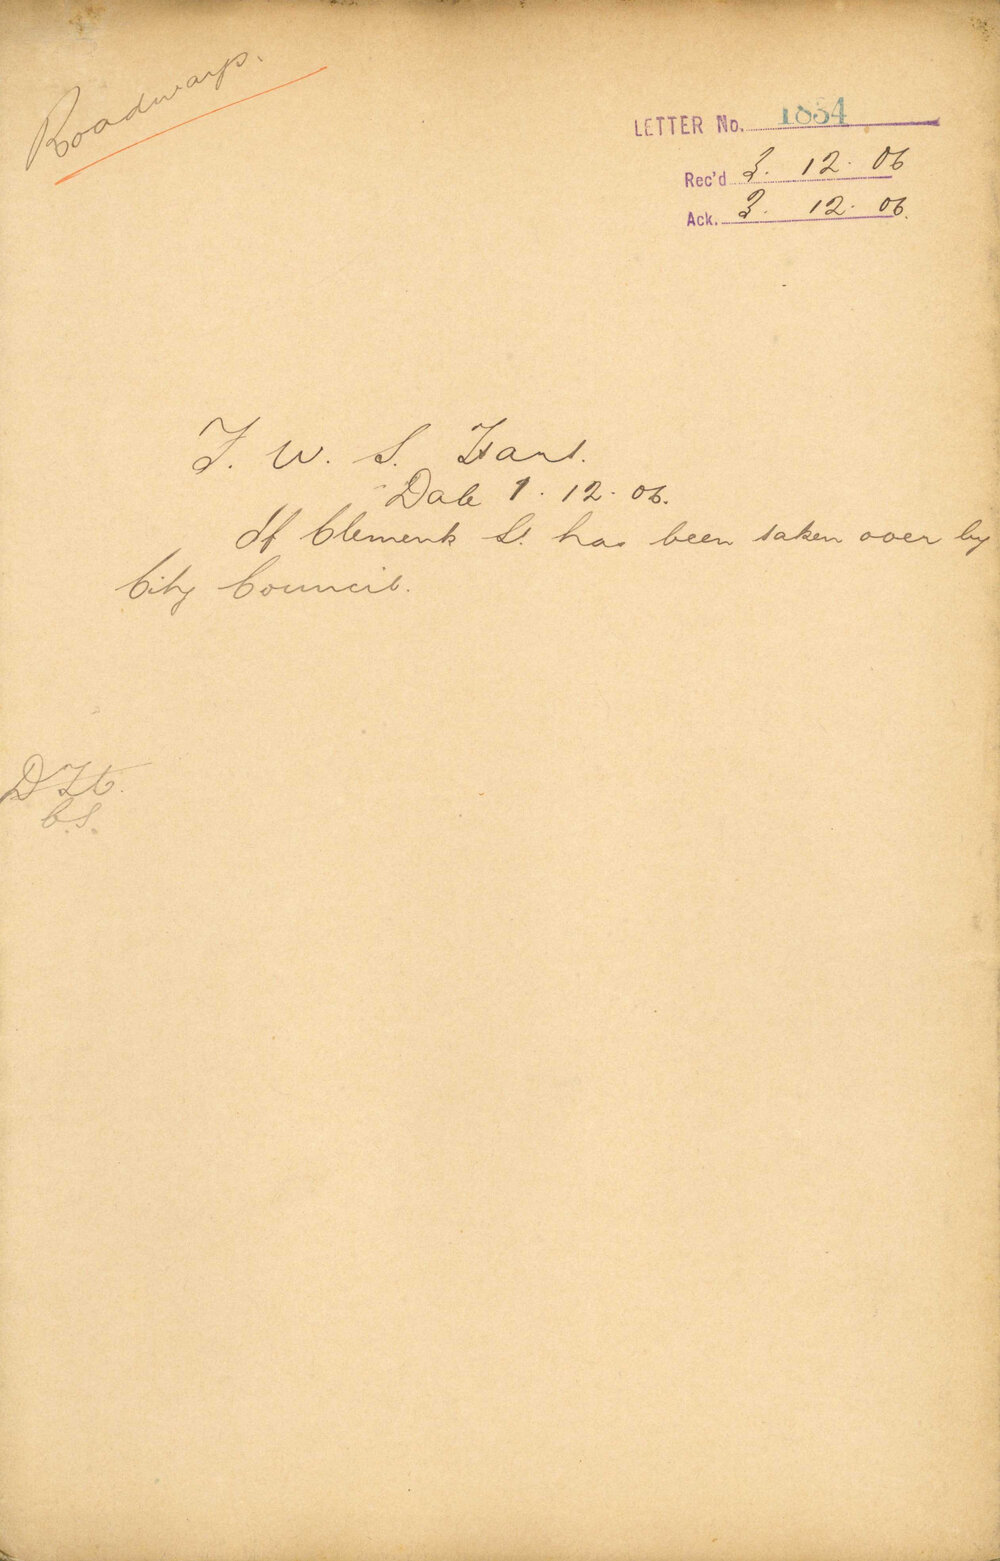 Roadways.
LETTER No. 1834
Rec'd 3. 12. 06
Ack. 3. 12. 06.
F. W. S. Hart.
Date 1. 12. 06.
If Clement St. has been taken over by
City Council.
C.S.